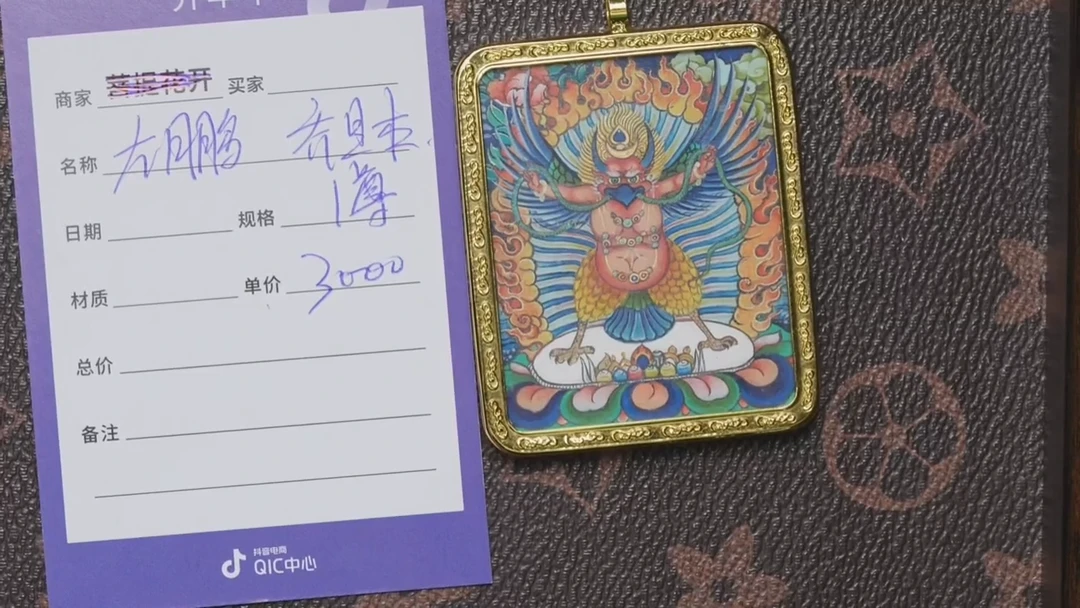 商家 菩提花开 买家
名称 大月鹏 乔旦杰
日期 规格 1尊
材质 单价 3000
总价
备注
抖音电商
QIC中心